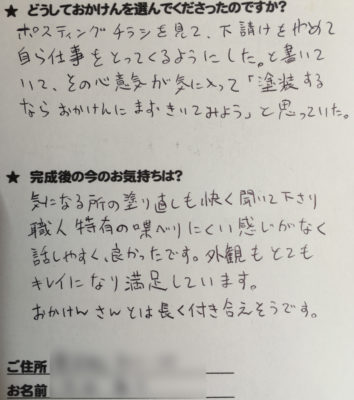 ★ どうしておかけんを選んでくださったのですか?
ポスティングチラシを見て、下請けをやめて
自ら仕事をとってくるようにした。と書いて
いて、その心意気が気に入って「塗装する
ならおかけんにまずきいてみよう」と思っていた。
★ 完成後の今のお気持ちは?
気になる所の塗り直しも快く聞いて下さり
職人特有の喋べりにくい感じがなく
話しやすく、良かったです。外観もとても
キレイになり満足しています。
おかけんさんとは長く付き合えそうです。
ご住所
お名前